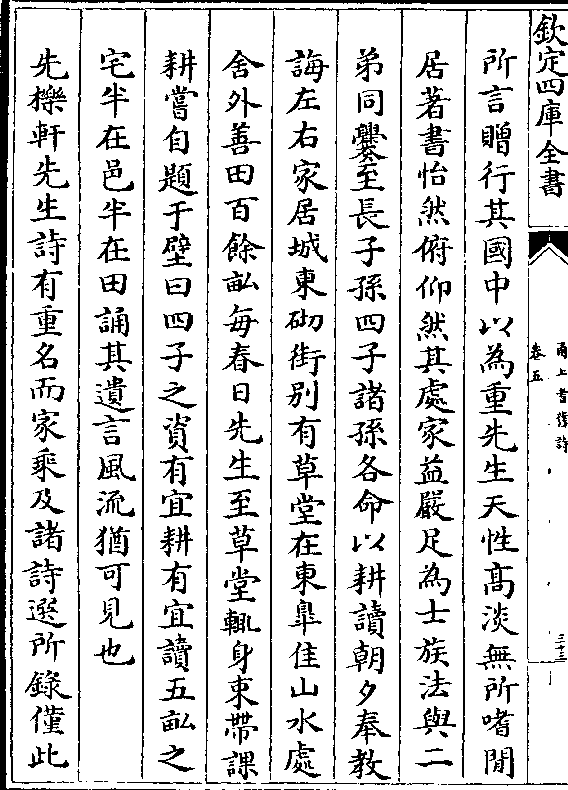 欽定四庫全書
甬上耆舊詩
卷五
三十三
所言贈行其國中以為重先生天性髙淡無所嗜閒
居著書怡然俯仰然其處家益嚴足為士族法與二
弟同爨至長子孫四子諸孫各命以耕讀朝夕奉教
誨左右家居城東砌街别有草堂在東臯佳山水處
舍外善田百餘畝每春日先生至草堂輒身束帶課
耕嘗自題于壁曰四子之資有宜耕有宜讀五畝之
宅半在邑半在田誦其遺言風流猶可見也
先櫟軒先生詩有重名而家乘及諸詩選所錄僅此